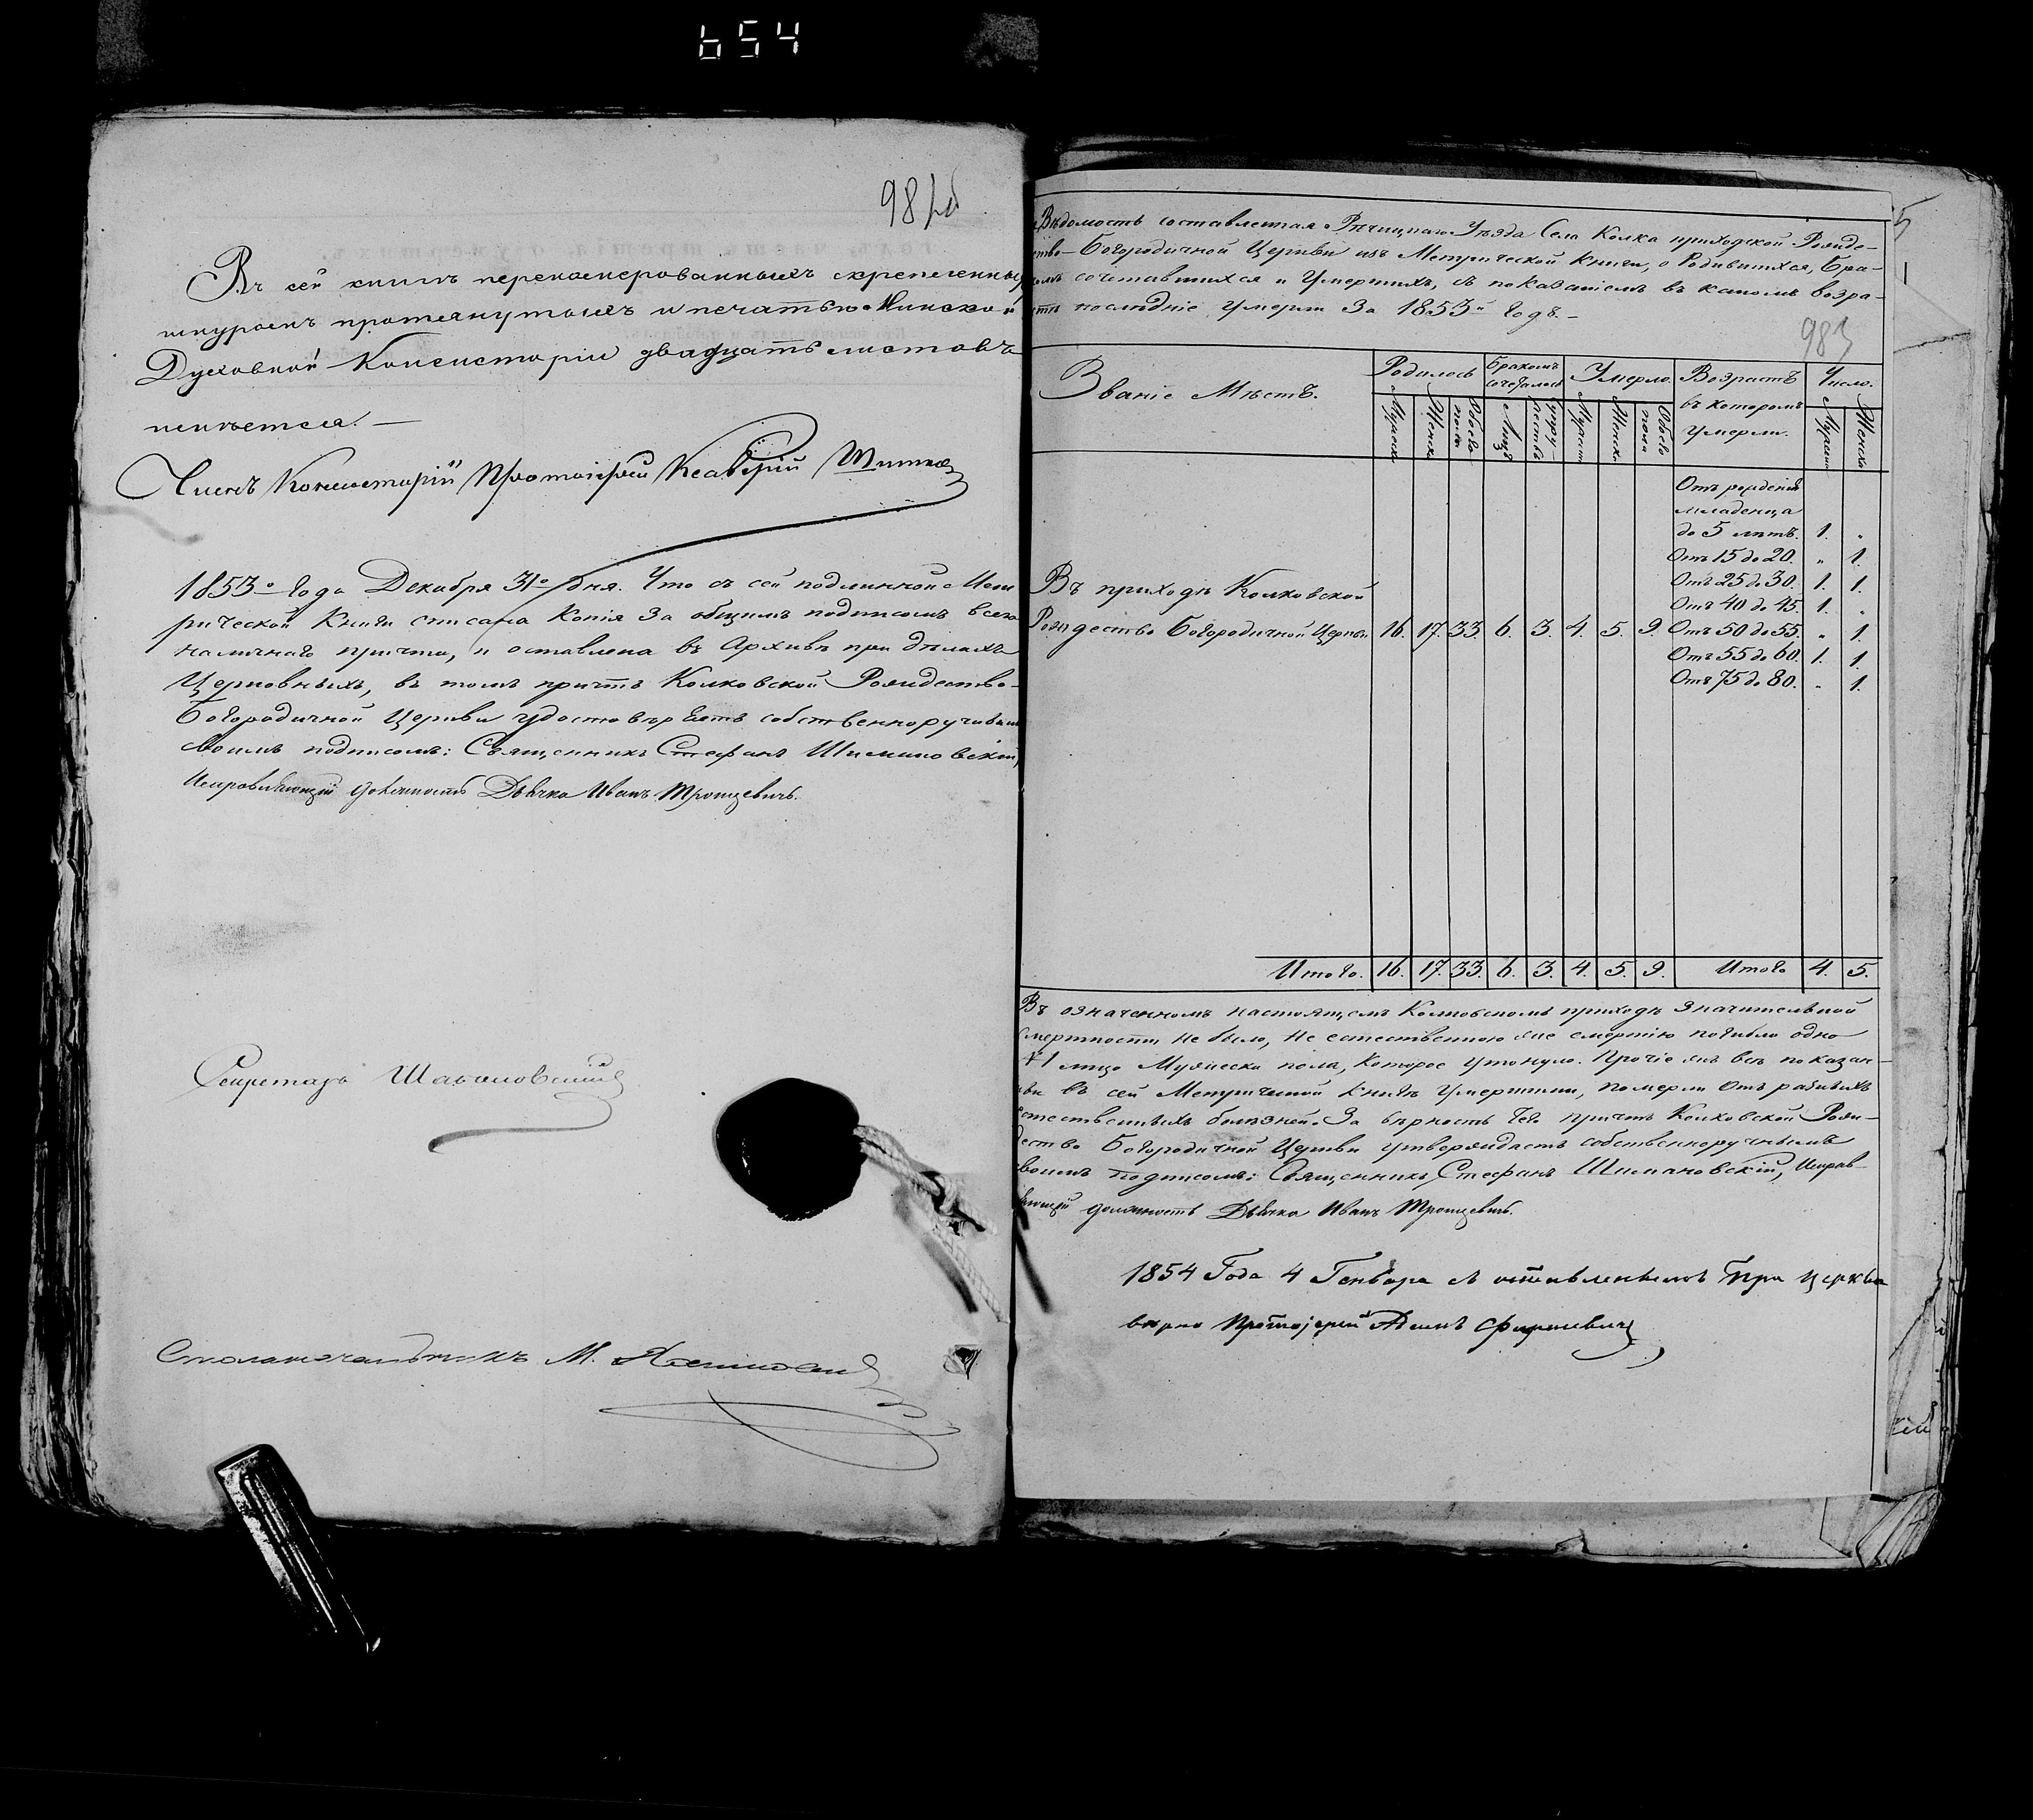 654
982об
Въ сей книгѣ перенумерованныхъ скрепленныхъ
шнуромъ протянутыхъ и печатью Минской
Духовной Консисторіи двадцать листовъ
имѣется. —
Членъ Консисторіи Протоіерей Ксаверій
1853го Года Декабря 31го дня. Что съ сей подлинной Мет
рической Книги списана Копія За общимъ подписомъ всего
наличнаго причта, и оставлена въ Архивѣ при дѣлахъ
Церковныхъ, въ томъ причтъ Колковской Рождество-
Богородичной Церкви удостовѣряетъ собственноручнымъ
своимъ подписомъ: Священникъ Стефанъ Шимановскій,
Исправляющій должность Дьячка Иванъ Троицевичъ.
Секретарь
Столоначальникъ М.
5
Вѣдомость составленная Рѣчицкаго Уѣзда Села Колка приходской Рожде-
ство-Богородичной Церкви изъ Метрической Книги, о Родившихся, Бра-
комъ сочетавшихся и Умершихъ, съ показаніемъ въ какомъ возра-
стѣ послѣдніе Умерли За 1853й Годъ.-
983
Званіе Мѣстъ. Родилось Бракомъ сочеталось Умерло. Возрастъ въ которомъ умерли. Число.
Мужеск. Женск. Обоего пола Лицъ супружествъ Мужеск. Женск. Обоего пола Мужеск. Женск.
Отъ рожденія
младенца
до 5 лѣтъ. 1. „
Отъ 15 до 20. „ 1.
Въ приходѣ Колковской Отъ 25 до 30. 1. 1.
Отъ 40 до 45. 1. „
Рождество Богородичной Церкви 16. 17. 33. 6. 3. 4. 5. 9. Отъ 50 до 55. „ 1.
Отъ 55 до 60. 1. 1.
Отъ 75 до 80. „ 1.
Итого. 16. 17. 33. 6. 3. 4. 5. 9. Итого 4. 5.
Въ означенномъ настоящемъ Колковскомъ приходѣ значительной
смертности не было, не естественною же смертію погибло одно
1 лицо Мужеска пола, которое утонуло. Прочіе же всѣ показан-
ные въ сей Метричной Книгѣ Умершими, померли Отъ разныхъ
естественныхъ болѣзней. За вѣрность чего причтъ Колковской Рож-
дество Богородичной Церкви утверждаетъ собственноручнымъ
своимъ подписомъ: Священникъ Стефанъ Шимановскій, Исправ-
ляющій должность Дьячка Иванъ Троицевичъ.
1854 Года 4 Генвара съ оставленнымъ При Церкви
вѣрно Протоіерей Адамъ